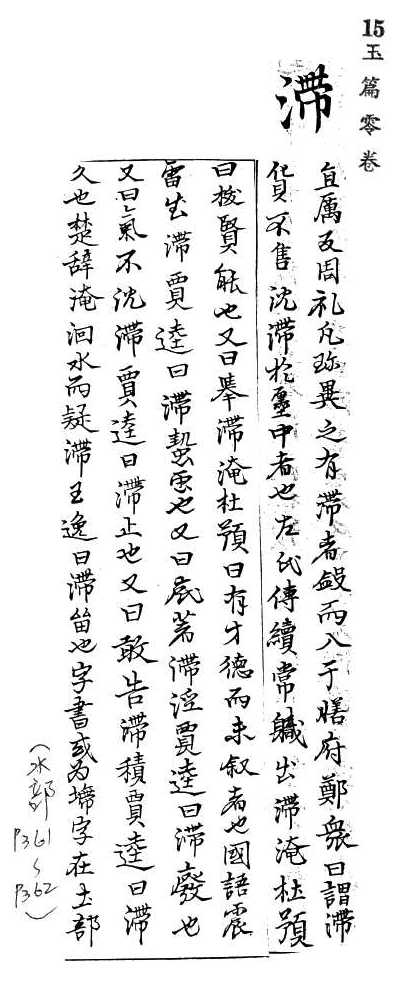 15 玉篇零卷
滯
直厲反周礼凡珎異之有滯者斂而入于膳府鄭衆曰謂滯
貨不售沈滯於㕓中者也左氏傳續常軄出滯淹杜預
曰抜賢能也又曰舉滯淹杜預曰有才德而未叙者也國語震
雷出滯賈逵曰滯蟄虫也又曰底著滯淫賈逵曰滯廢也
又曰氣不沈滯賈逵曰滯止也又曰敢告滯積賈逵曰滯
久也楚辞淹洄水而疑滯王逸曰滯留也字書或為墆字在土部
(水部
P361
~
P362)